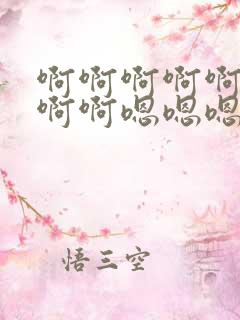 啊啊啊啊啊
啊啊嗯嗯嗯
悟三空